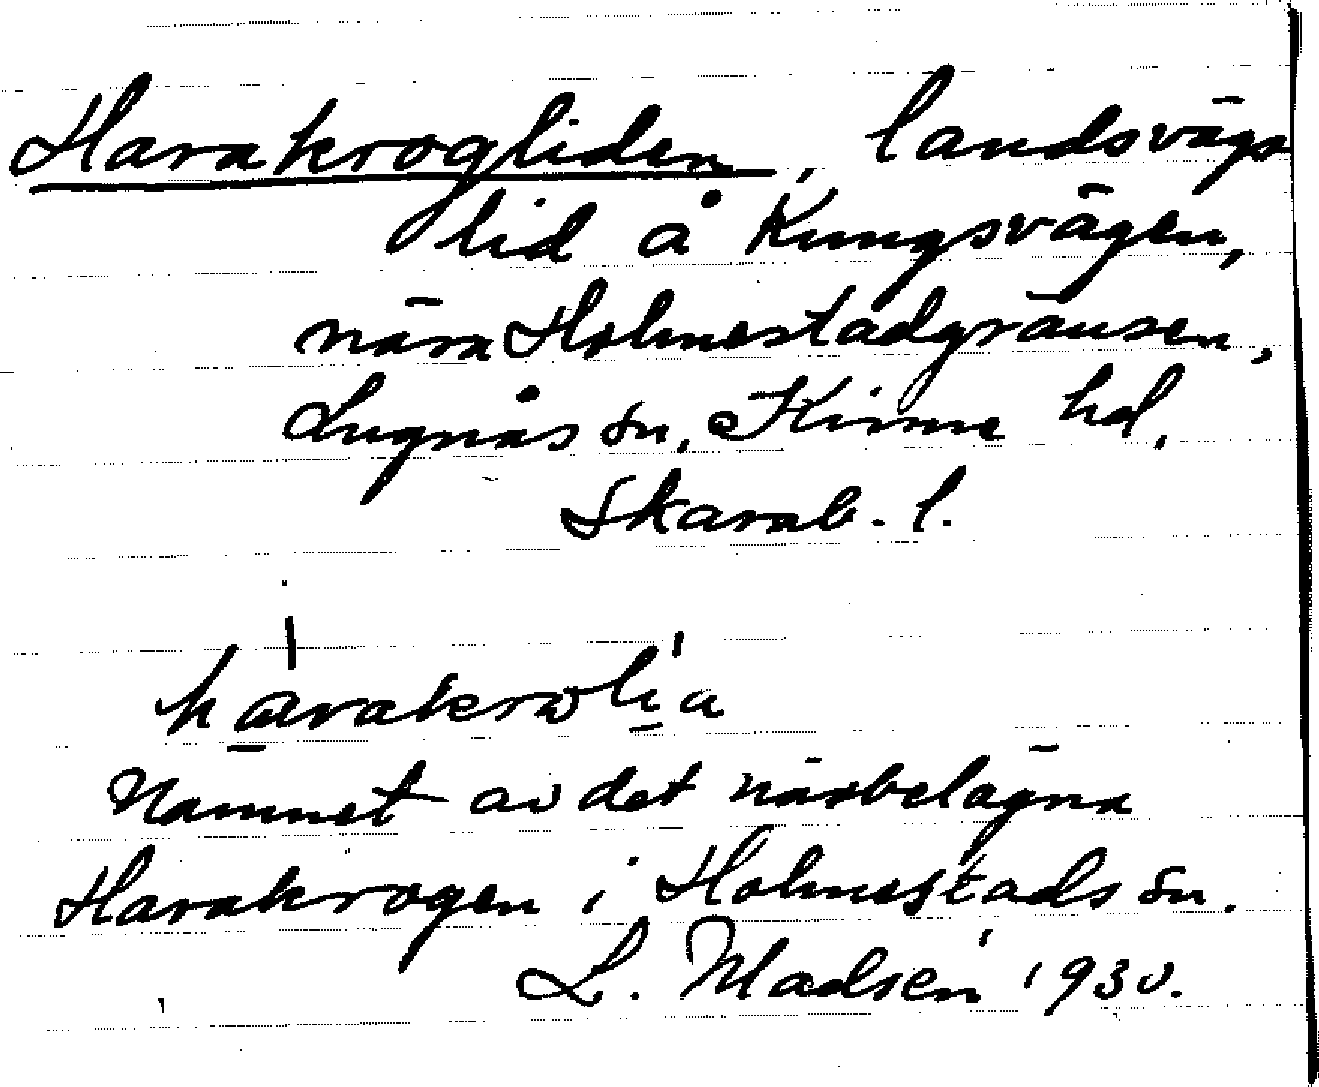 Harakrogliden, landsvägs
lid å Kungsvägen,
nära Holmestadgränsen,
Lugnås sn, Kinne hd,
Skarab. l.
Namnet av det närbelägna
Harakrogen i Holmestads sn.
L. Madsén 1930.